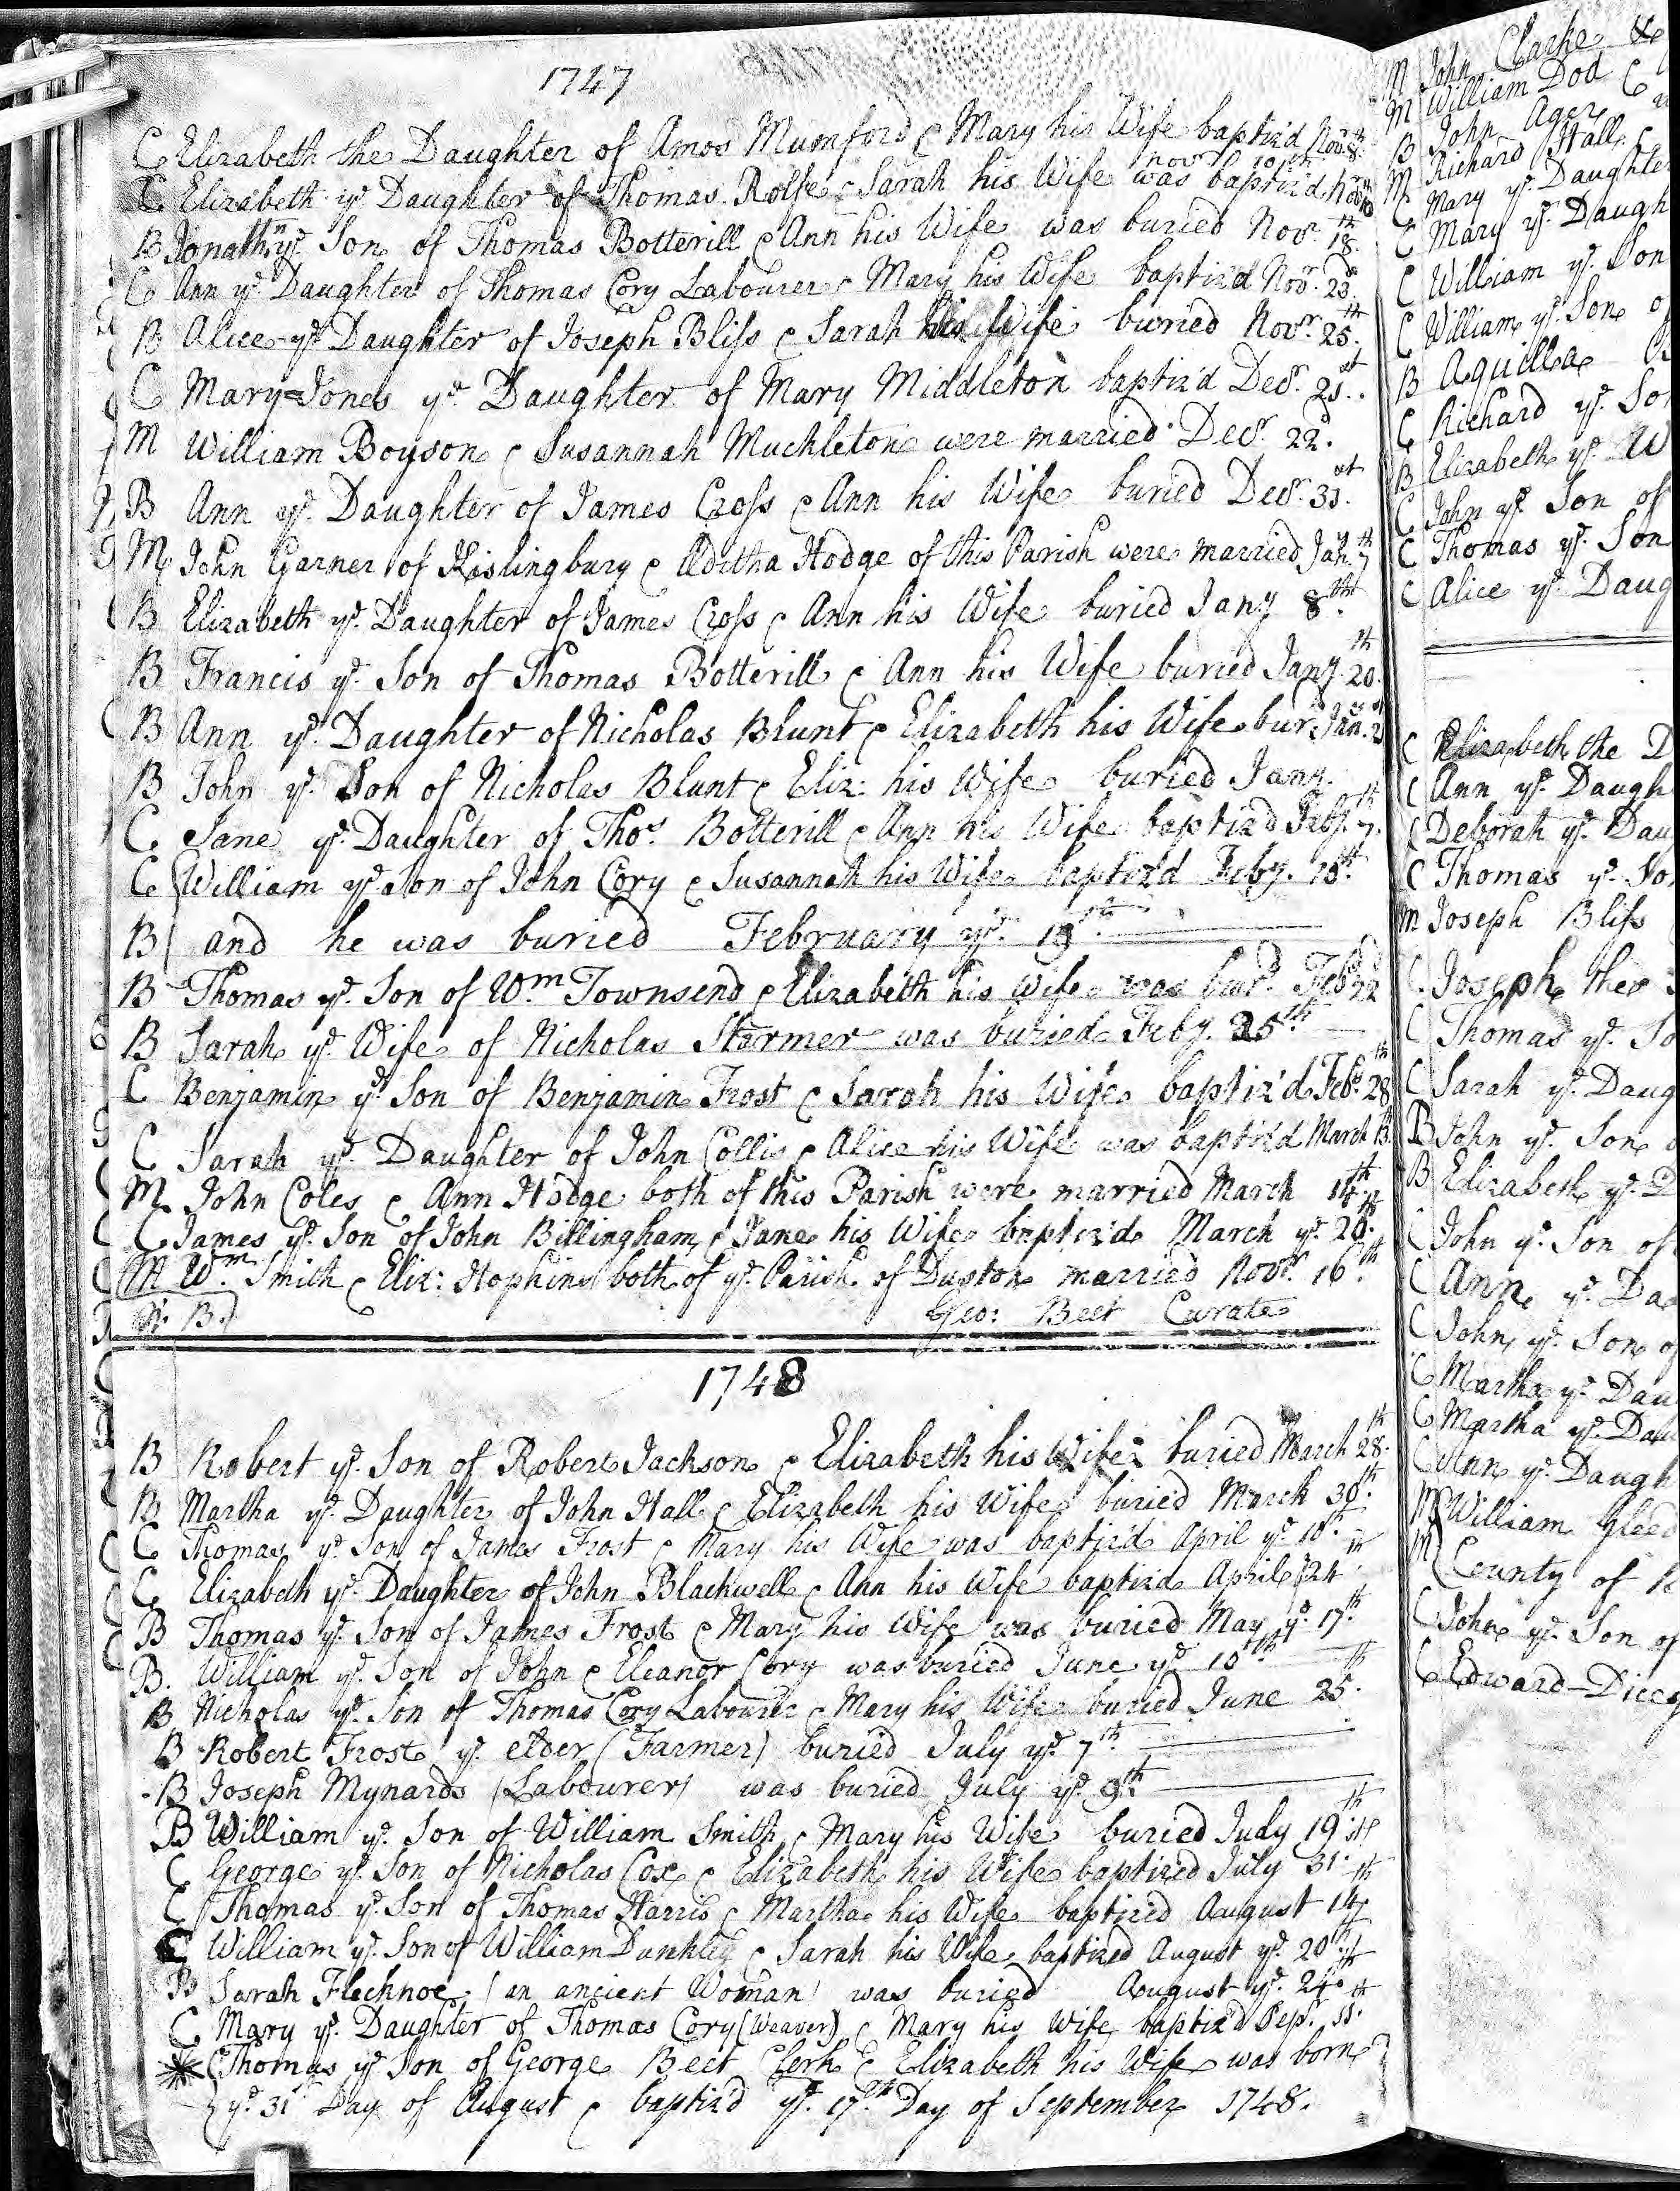 1747
C Elizabeth the Daughter of Amos Mumford & Mary his Wife baptiz'd Novr. 8th.
Novr 10th
C Elizabeth ye. Daughter of Thomas Rolfe & Sarah his Wife was baptiz'd Novr 10th
B Jonathn. ye. Son of Thomas Botterill & Ann his Wife was buried Novr. 18th.
C Ann ye. Daughter of Thomas Cory Labourer & Mary his Wife baptiz'd Novr. 23d.
B Alice ye. Daughter of Joseph Bliss & Sarah his Wife buried Novr. 25th.
C Mary=Jones ye. Daughter of Mary Middleton baptiz'd Decr. 21st.
M William Boyson & Susannah Muckleton were married Decr. 22d.
B Ann ye. Daughter of James Cross & Ann his Wife buried Decr. 31st.
M John Garner of Kislingbury & Editha Hodge of this Parish were married Jany. 7th
B Elizabeth ye. Daughter of James Cross & Ann his Wife buried Jany 8th.
B Francis ye. Son of Thomas Botterill & Ann his Wife buried Jany. 20th.
B Ann ye. Daughter of Nicholas Blunt & Elizabeth his Wife bur: Jan.
B John ye. Son of Nicholas Blunt & Eliz: his Wife buried Jany.
C Jane ye. Daughter of Thos. Botterill & Ann his Wife baptiz'd Feby. 7th.
C William ye. Son of John Cory & Susannah his Wife baptiz'd Feby.
B and he was buried February ye.
B Thomas ye. Son of Wm Townsend & Elizabeth his Wife was bur'd. Feby 22d
B Sarah ye. Wife of Nicholas Starmer was buried Feby. 25th.
C Benjamin ye. Son of Benjamin Frost & Sarah his Wife baptiz'd Feby. 28th
C Sarah ye. Daughter of John Collis & Alice his Wife was baptiz'd March 13.
M John Coles & Ann Hodge both of this Parish were married March 14th.
C James ye. Son of John Billingham & Jane his Wife baptiz'd March ye. 20th.
M Wm. Smith & Eliz: Hopkins both of ye. Parish of Duston married Novr. 16th.
N. B. Geo: Beet Curate
1748
B Robert ye. Son of Robert Jackson & Elizabeth his Wife buried March 28th.
B Martha ye. Daughter of John Hall & Elizabeth his Wife buried March 30th.
C Thomas ye. Son of James Frost & Mary his Wife was baptiz'd April ye. 10th.
C Elizabeth ye. Daughter of John Blackwell & Ann his Wife baptiz'd April ye 24th
B Thomas ye. Son of James Frost & Mary his Wife was buried May ye. 17th.
B. William ye. Son of John & Eleanor Cory was buried June ye. 10th
B Nicholas ye. Son of Thomas Cory Labourer & Mary his Wife buried June 25th.
B Robert Frost ye. elder (Farmer) buried July ye. 7th.
B Joseph Mynards (Labourer) was buried July ye. 9th.
B William ye. Son of William Smith & Mary his Wife buried July 19th.
C George ye. Son of Nicholas Cox & Elizabeth his Wife baptized July 31st.
C Thomas ye. Son of Thomas Harris & Martha his Wife baptized August 14th
C William ye. Son of William Dunkley & Sarah his Wife baptized August ye. 20th.
B Sarah Flecknoe (an ancient Woman) was buried August ye. 24th.
C Mary ye. Daughter of Thomas Cory (Weaver) & Mary his Wife baptiz'd Sepr. 11th.
C Thomas ye. Son of George Beet Clerk & Elizabeth his Wife was born
ye. 31st Day of August & baptiz'd ye. 17th Day of September 1748.
M John Clarke &
M William Dod &
B John Ager
M Richard Hall &
C Mary ye. Daughter
C Mary ye. Daugh
C William ye. Son
C William ye. Son o
B Aquilla
C Richard ye. So
B Elizabeth ye. W
C John ye. Son of
C Thomas ye. Son
C Alice ye. Daug
C Elizabeth the D
C Ann ye. Daugh
C Deborah ye. Dau
C Thomas ye. So
M Joseph Bliss
C Joseph the S
C Thomas ye. So
C Sarah ye. Daug
B John ye. Son
B Elizabeth ye. D
C John ye. Son of
C Ann ye. Da
C John ye. Son o
C Martha ye. Dau
C Martha ye. Dau
C Ann ye. Daugh
M William
County of
C John ye. Son of
C Edward Dicey